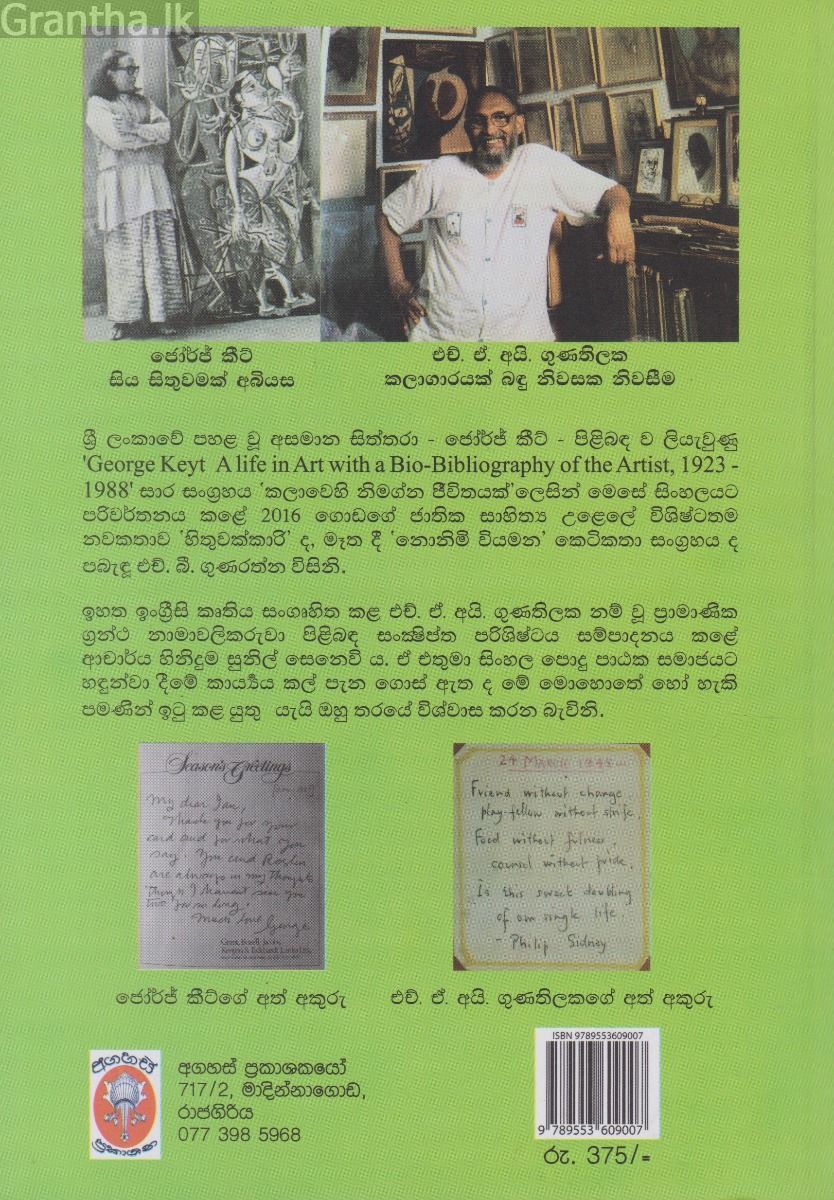 Grantha.lk
ජෝර්ජ් කීට්
සිය සිතුවමක් අබියස
එච්. ඒ. අයි. ගුණතිලක
කලාගාරයක් බඳු නිවසක නිවසීම
ශ්‍රී ලංකාවේ පහළ වූ අසමාන සිත්තරා - ජෝර්ජ් කීට් - පිළිබඳ ව ලියැවුණු
'George Keyt A life in Art with a Bio-Bibliography of the Artist, 1923 -
1988' සාර සංග්‍රහය 'කලාවෙහි නිමග්න ජීවිතයක්'ලෙසින් මෙසේ සිංහලයට
පරිවර්තනය කළේ 2016 ගොඩගේ ජාතික සාහිත්‍ය උළෙලේ විශිෂ්ටතම
නවකතාව 'හිතුවක්කාරි' ද, මෑත දී 'නොනිමි වියමන' කෙටිකතා සංග්‍රහය ද
පබැඳූ එච්. බී. ගුණරත්න විසිනි.
ඉහත ඉංග්‍රීසි කෘතිය සංගෘහිත කළ එච්. ඒ. අයි. ගුණතිලක නම් වූ ප්‍රාමාණික
ග්‍රන්ථ නාමාවලිකරුවා පිළිබඳ සංක්‍ෂිප්ත පරිශිෂ්ටය සම්පාදනය කළේ
ආචාර්ය හිනිදුම සුනිල් සෙනෙවි ය. ඒ එතුමා සිංහල පොදු පාඨක සමාජයට
හඳුන්වා දීමේ කාර්‍ය්‍යය කල් පැන ගොස් ඇත ද මේ මොහොතේ හෝ හැකි
පමණින් ඉටු කළ යුතු යැයි ඔහු තරයේ විශ්වාස කරන බැවිනි.
Season's Greetings
My dear Ian,
Thank you for your
card and for what you
say. You and Roslin
are always in my thoughts
Though I haven't seen you
two for so long.
Much love George
24 March 1948
Friend without change,
play-fellow without strife,
Food without fulness,
counsel without pride,
Is this sweet doubling
of our single life.
- Philip Sidney
ජෝර්ජ් කීට්ගේ අත් අකුරු
එච්. ඒ. අයි. ගුණතිලකගේ අත් අකුරු
අගහස්
ප්‍රකාශන
අගහස් ප්‍රකාශකයෝ
717/2, මාදින්නාගොඩ,
රාජගිරිය
077 398 5968
ISBN 9789553609007
9 789553 609007
රු. 375/=